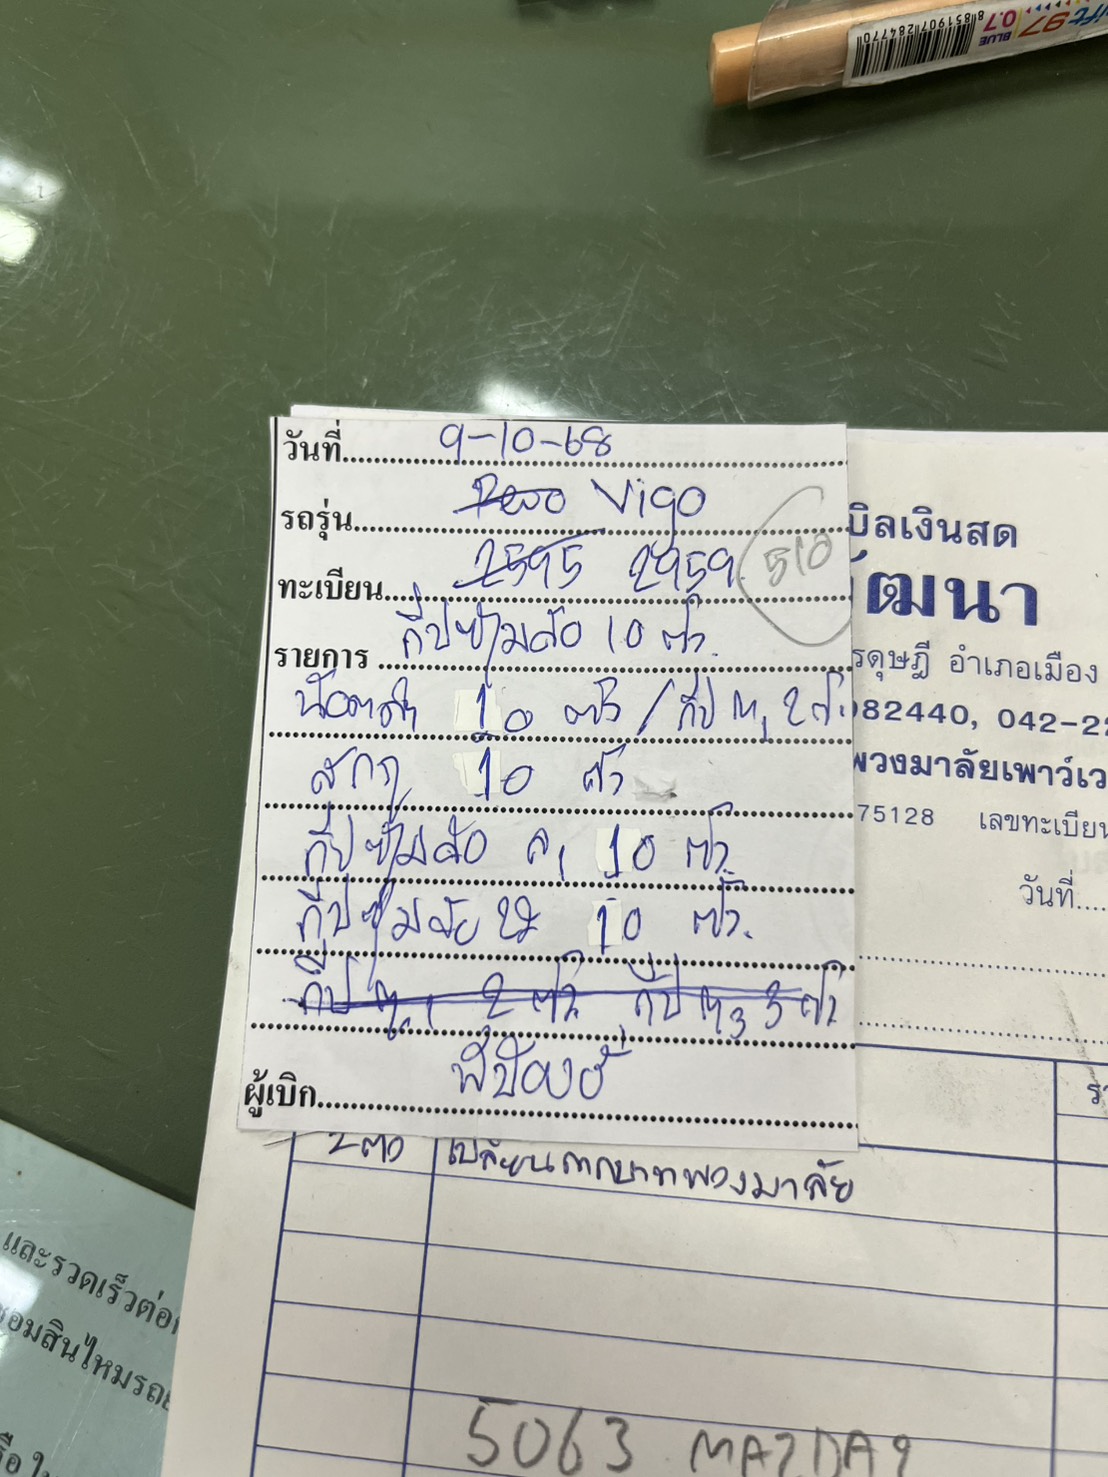 8851907284770
BLUE 0.7
97
วันที่ 9-10-68
รถรุ่น Vigo
ทะเบียน 2595 2959 510
รายการ กิ๊ปซุ้มล้อ 10 ตัว
น๊อตดำ 10 ตัว / กิ๊ป 2 ตัว
สกรู 10 ตัว
กิ๊ปซุ้มล้อ 10 ตัว
กิ๊ปซุ้มล้อ 10 ตัว
กิ๊ป 2 ตัว กิ๊ป 3 ตัว
ผู้เบิก
บิลเงินสด
ัฒนา
รดุษฎี อำเภอเมือง
082440, 042-22
พวงมาลัยเพาว์เว
75128 เลขทะเบียน
วันที่
2 ตัว เปลี่ยน พวงมาลัย
5063 MAZDA2
และรวดเร็วต่อ
ซ่อมสินไหมรถย